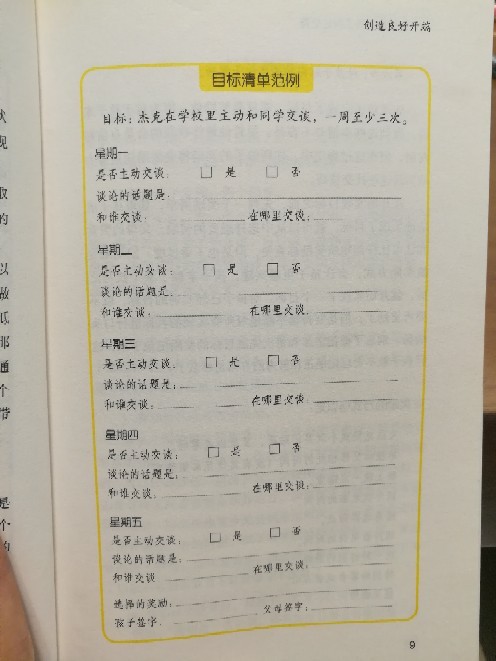 创造良好开端
目标清单范例
目标：杰克在学校里主动和同学交谈，一周至少三次。
星期一
是否主动交谈： □ 是 □ 否
谈论的话题是：
和谁交谈： 在哪里交谈：
星期二
是否主动交谈： □ 是 □ 否
谈论的话题是：
和谁交谈： 在哪里交谈：
星期三
是否主动交谈： □ 是 □ 否
谈论的话题是：
和谁交谈： 在哪里交谈：
星期四
是否主动交谈： □ 是 □ 否
谈论的话题是：
和谁交谈： 在哪里交谈：
星期五
是否主动交谈： □ 是 □ 否
谈论的话题是：
和谁交谈 在哪里交谈：
选择的奖励：
孩子签字： 父母签字：
9